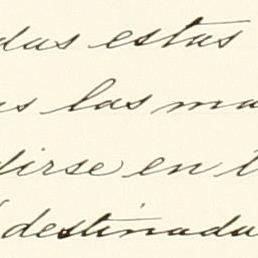 das estas
as las ma
dirse en l
destinada